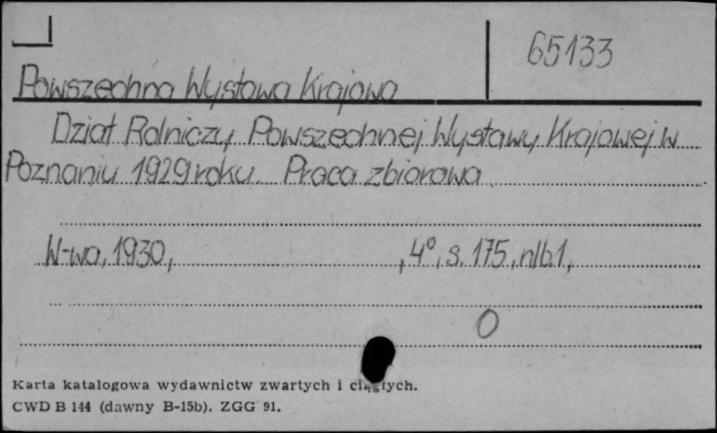 65133
Powszechna Wystawa Krajowa
Dział Rolniczy Powszechnej Wystawy Krajowej w
Poznaniu 1929 roku. Praca zbiorowa.
W-wa, 1930, , 4°, s. 175, nlb. 1,
0
Karta katalogowa wydawnictw zwartych i ciągłych.
CWD B 144 (dawny B-15b). ZGG 91.